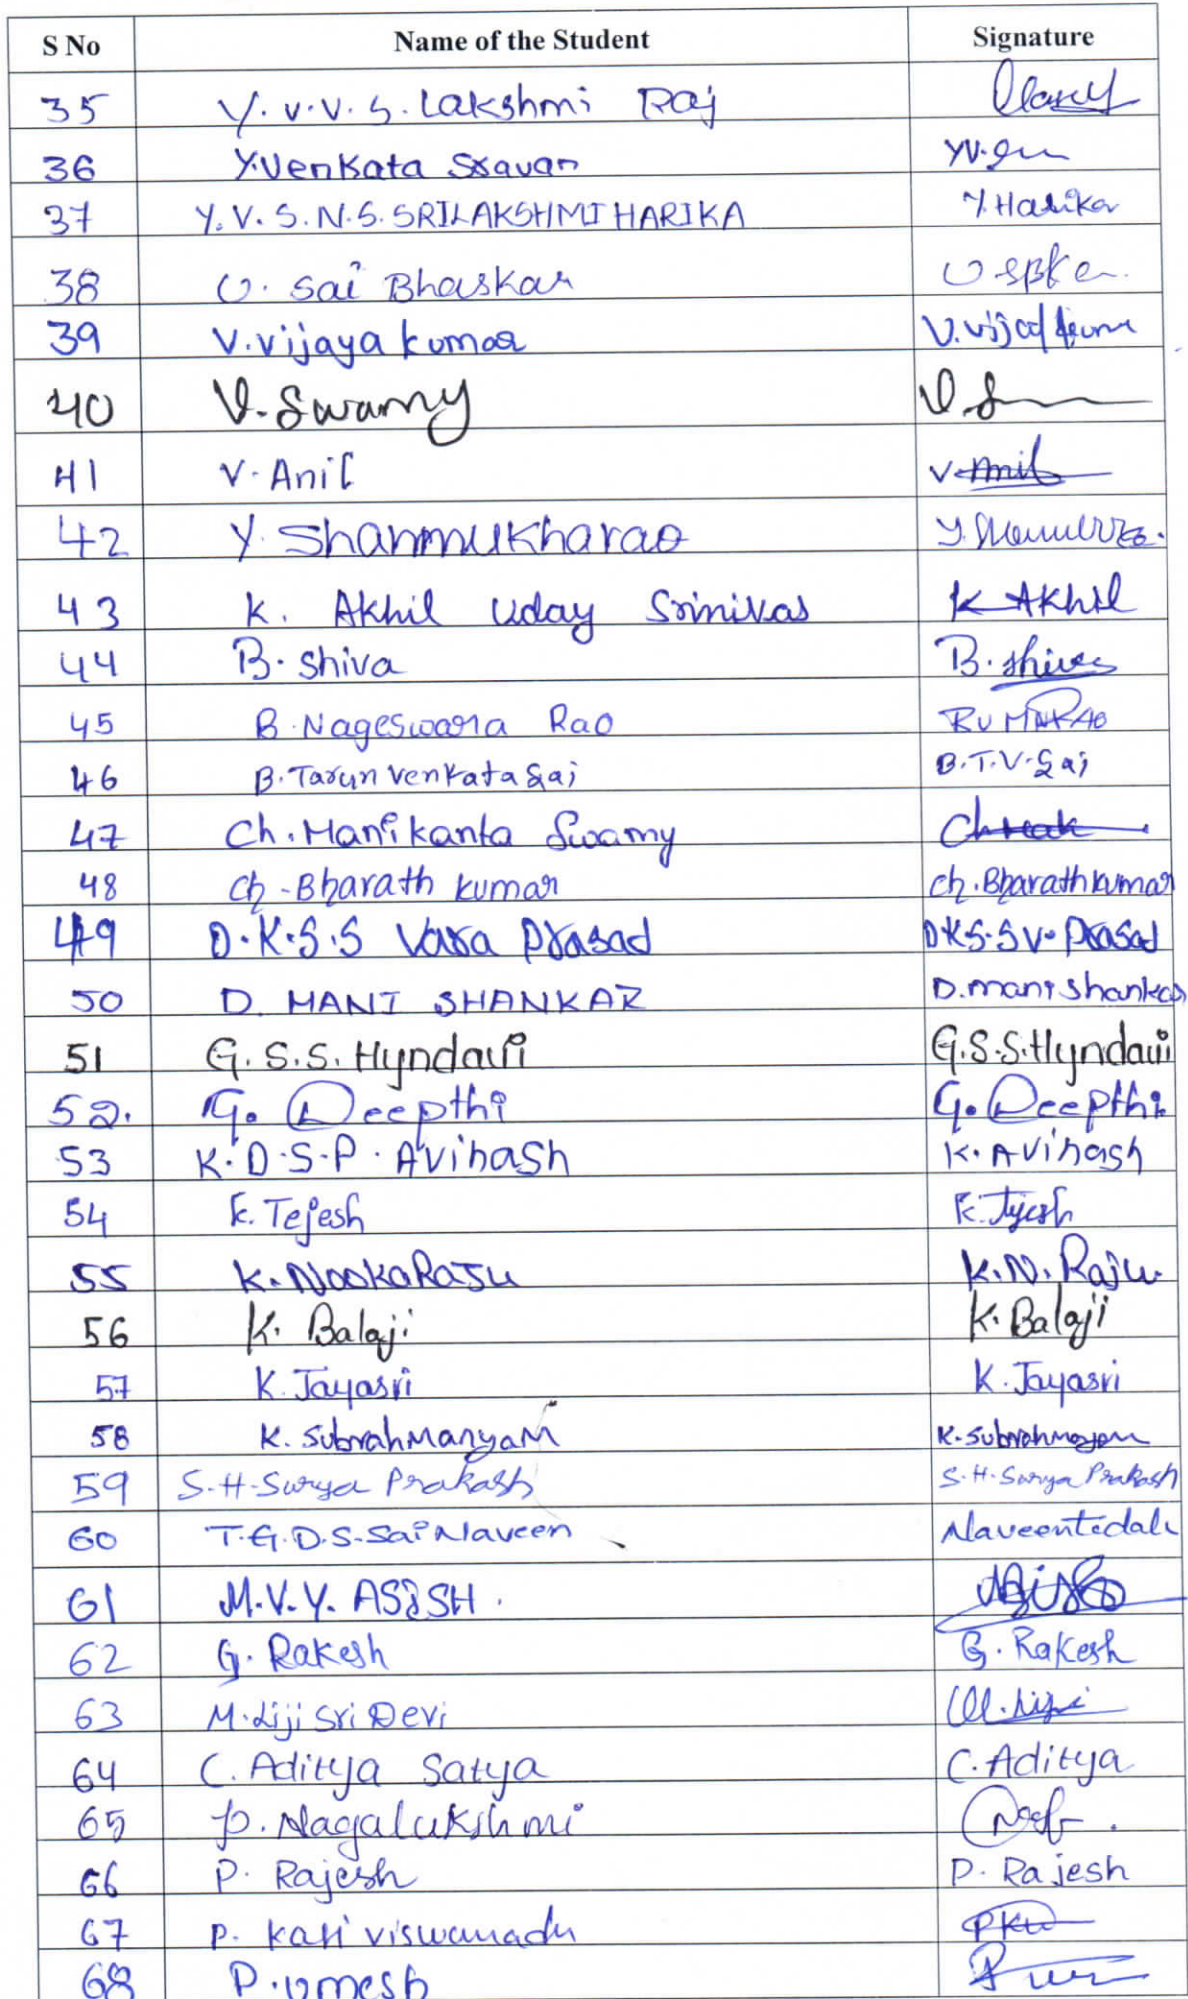 S No Name of the Student Signature
35 Y.V.V.S. Lakshmi Raj
36 Y.Venkata Sravan
37 Y.V.S.N.S. SRILAKSHMI HARIKA Y.Harika
38 U. Sai Bhaskar
39 V.vijaya kumar
40 V.Swamy
41 V.Anil V.Anil
42 Y. Shanmukharao
43 K. Akhil Uday Srinivas K AKhil
44 B. Shiva B. Shiva
45 B.Nageswara Rao
46 B.Tarun Venkata Sai B.T.V.Sai
47 Ch.Manikanta Swamy
48 ch.Bharath kumar ch.Bharath kumar
49 D.K.S.S Vara Prasad D.K.S.S V. Prasad
50 D. MANI SHANKAR D.mani Shankar
51 G.S.S. Hyndavi G.S.S. Hyndavi
52. G. Deepthi G. Deepthi
53 K.D.S.P. Avinash K. Avinash
54 K. Tejesh K. Tejesh
55 K. NookaRaju K.N. Raju
56 K. Balaji K. Balaji
57 K. Jayasri K. Jayasri
58 K. SubrahManyaM K. Subrahmanyam
59 S.H.Surya Prakash S.H.Surya Prakash
60 T.G.D.S.Sai Naveen
61 M.V.Y. ASISH.
62 G. Rakesh G. Rakesh
63 M.Liji Sri Devi
64 C. Aditya Satya C. Aditya
65 P. Nagalakshmi
66 P. Rajesh P. Rajesh
67 P. Kasi viswanadh
68 P.Umesh